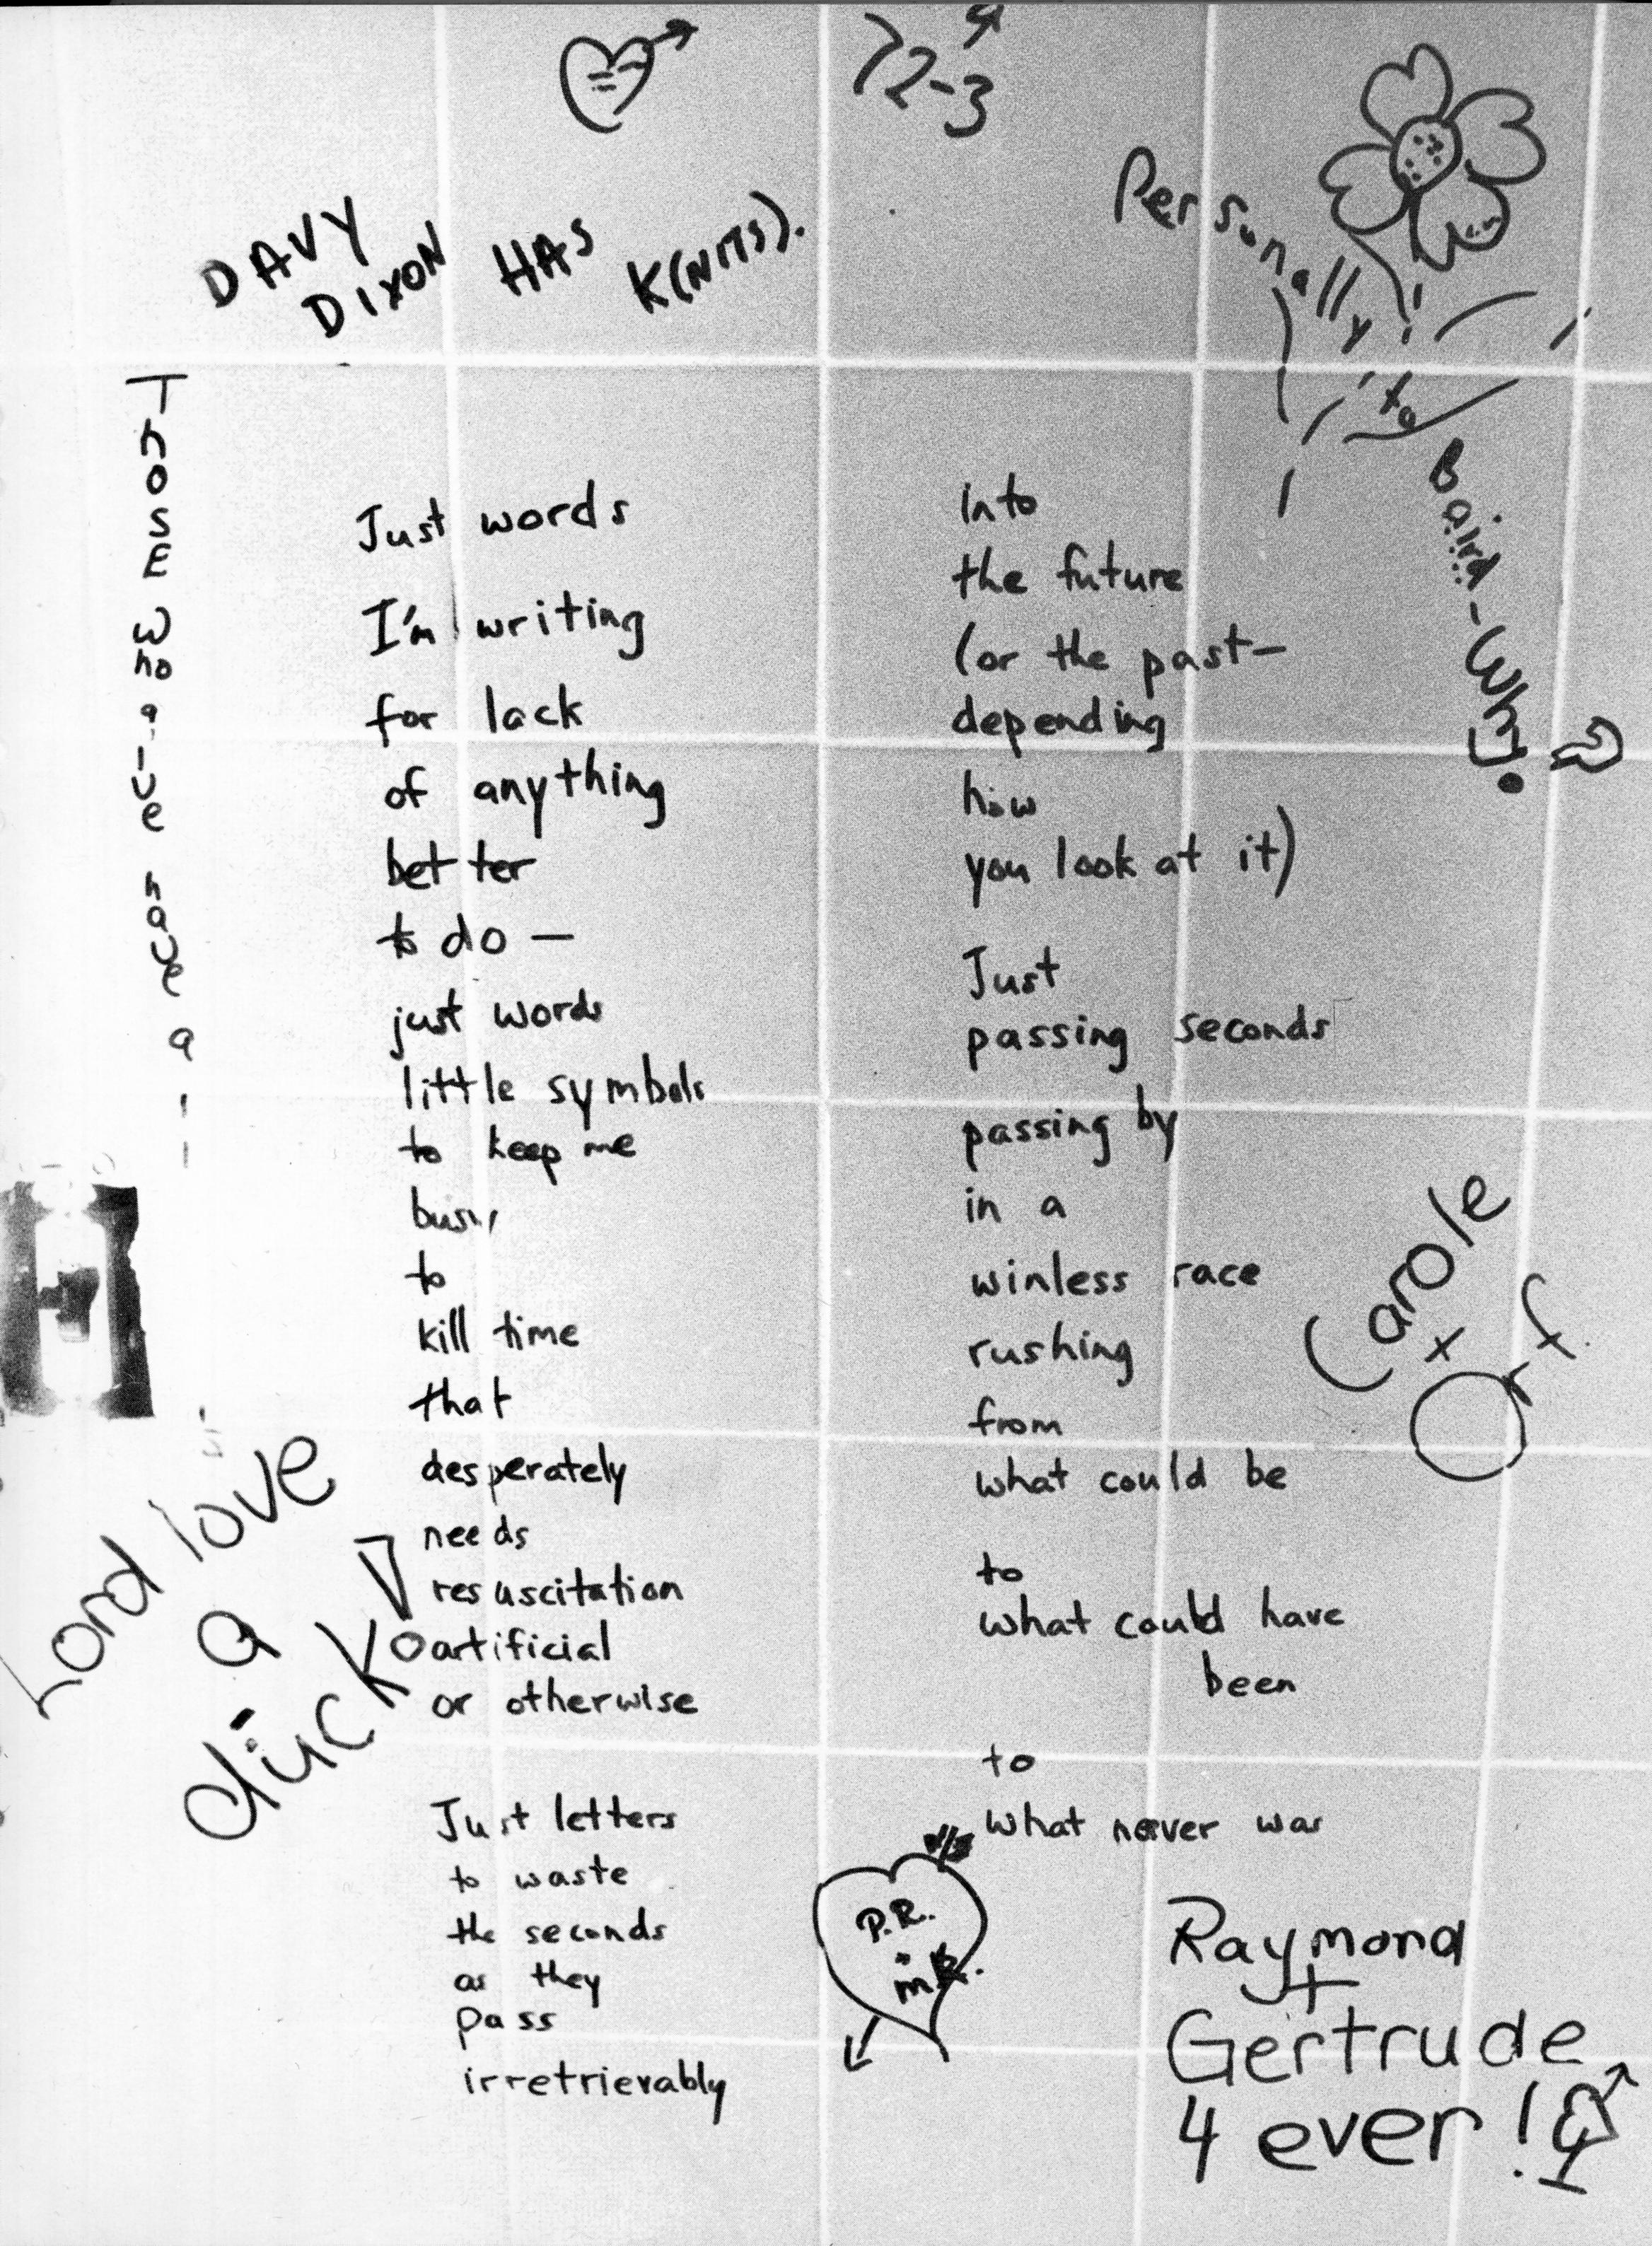 72-3
DAVY
DIXON HAS K(NITS).
Personally
to
Baird - Why?
Those who give have all
Just words
I'm writing
for lack
of anything
better
to do —
just words
little symbols
to keep me
busy
to
kill time
that
desperately
needs
resuscitation
artificial
or otherwise
Just letters
to waste
the seconds
as they
pass
irretrievably
into
the future
(or the past—
depending
how
you look at it)
Just
passing seconds
passing by
in a
winless race
rushing
from
what could be
to
what could have
been
to
what never was
Lord love
a
duck
Carole
+
Orf
P.R.
+
Raymond
+
Gertrude
4 ever!